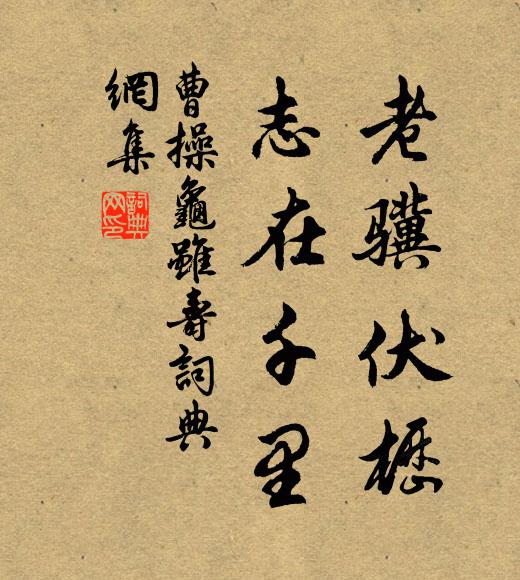 老骥伏櫪
志在千里
曹操龜雖壽詞典
網集
詞典
网印